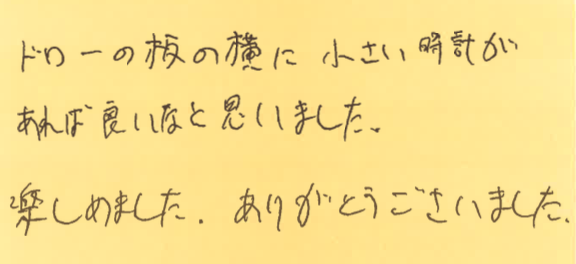 ドローの板の横に 小さい時計が
あれば良いなと思いました。
楽しめました. ありがとうございました.